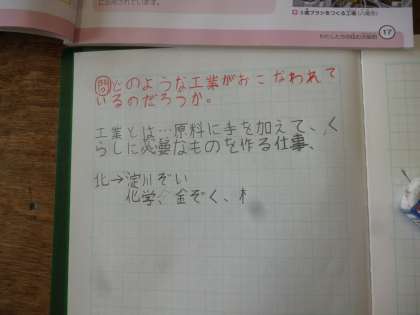 歯ブラシをつくる工場(八尾市)
17
わたしたちの住む大阪府
問 どのような工業がおこなわれて
いるのだろうか。
工業とは…原料に手を加えて、く
らしに必要なものを作る仕事、
北→淀川ぞい
化学、金ぞく、